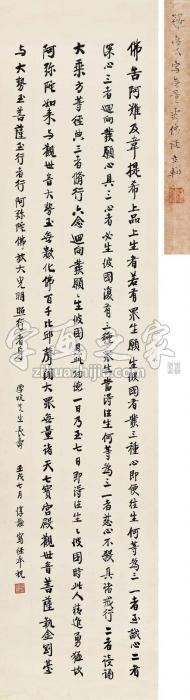 佛告阿難及韋提希上品上生者若有眾生願生彼國者發三種心即便往生何等為三一者至誠心二者
深心三者迴向發願心具三心者必生彼國復有三種眾生當得往生何等為三一者慈心不殺具諸戒行二者讀誦
大乘方等經典三者修行六念迴向發願願生彼國具此功德一日乃至七日即得往生生彼國時此人精進勇猛故
阿彌陀如來與觀世音大勢至無數化佛百千比丘聲聞大眾無量諸天七寶宮殿觀世音菩薩執金剛臺
與大勢至菩薩至行者前阿彌陀佛放大光明照行者身
壬戌七月
字画之家